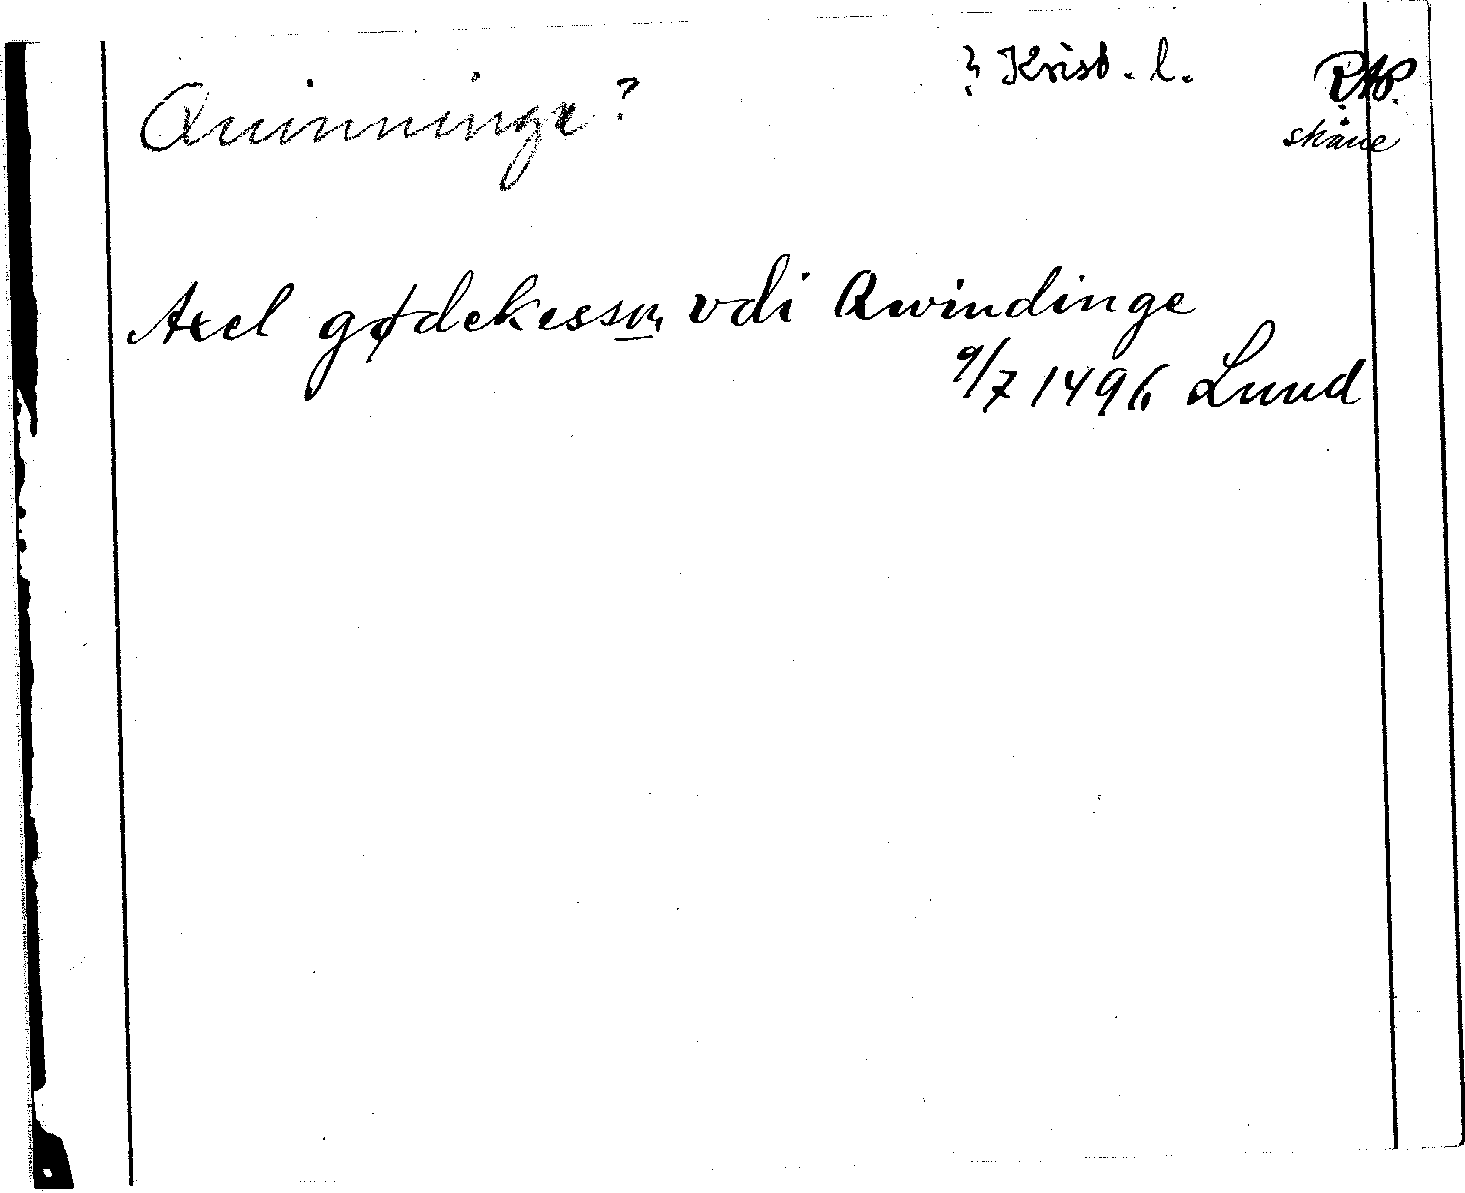 ? Krist. l. RAP.
Quinninge? skåne
Axel gødekessøn vdi Qwindinge
9/7 1496 Lund